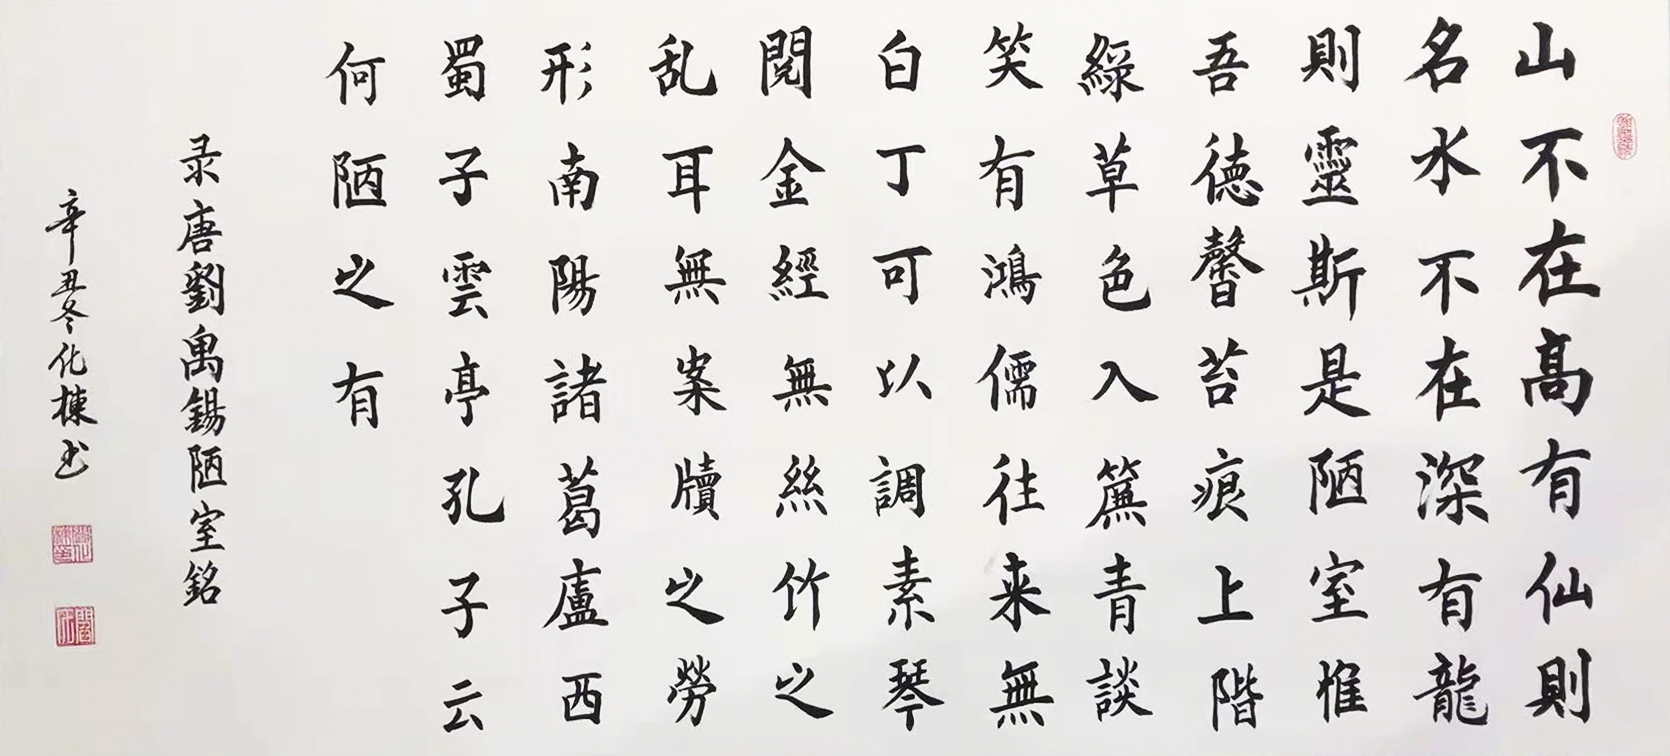 山不在高有仙則
名水不在深有龍
則靈斯是陋室惟
吾德馨苔痕上階
綠草色入簾青談
笑有鴻儒往来無
白丁可以調素琴
閱金經無絲竹之
乱耳無案牘之勞
形南陽諸葛廬西
蜀子雲亭孔子云
何陋之有
录唐劉禹錫陋室銘
辛丑冬化棟书